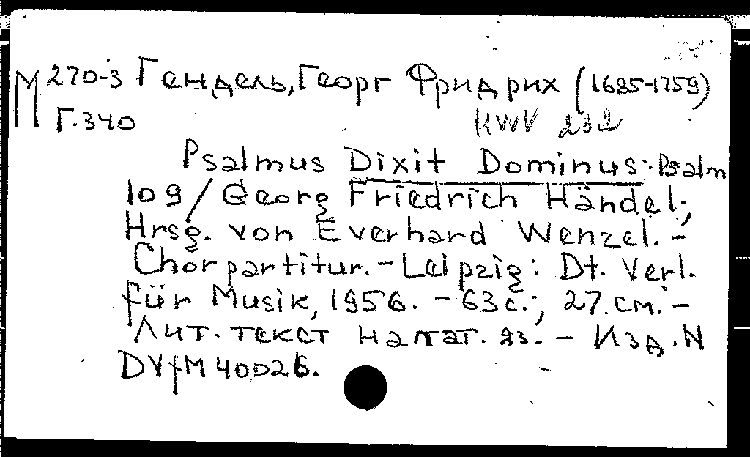 М 270-3 Гендель, Георг Фридрих (1685-1759)
Г.340 HWV 232
Psalmus Dixit Dominus: Psalm
109/ Georg Friedrich Händel;
Hrsg. von Everhard Wenzel. –
Chorpartitur. – Leipzig: Dt. Verl.
für Musik, 1956. – 63 с.; 27 см. –
Лит. текст на лат. яз. – Изд. N
DVfM 4002б.